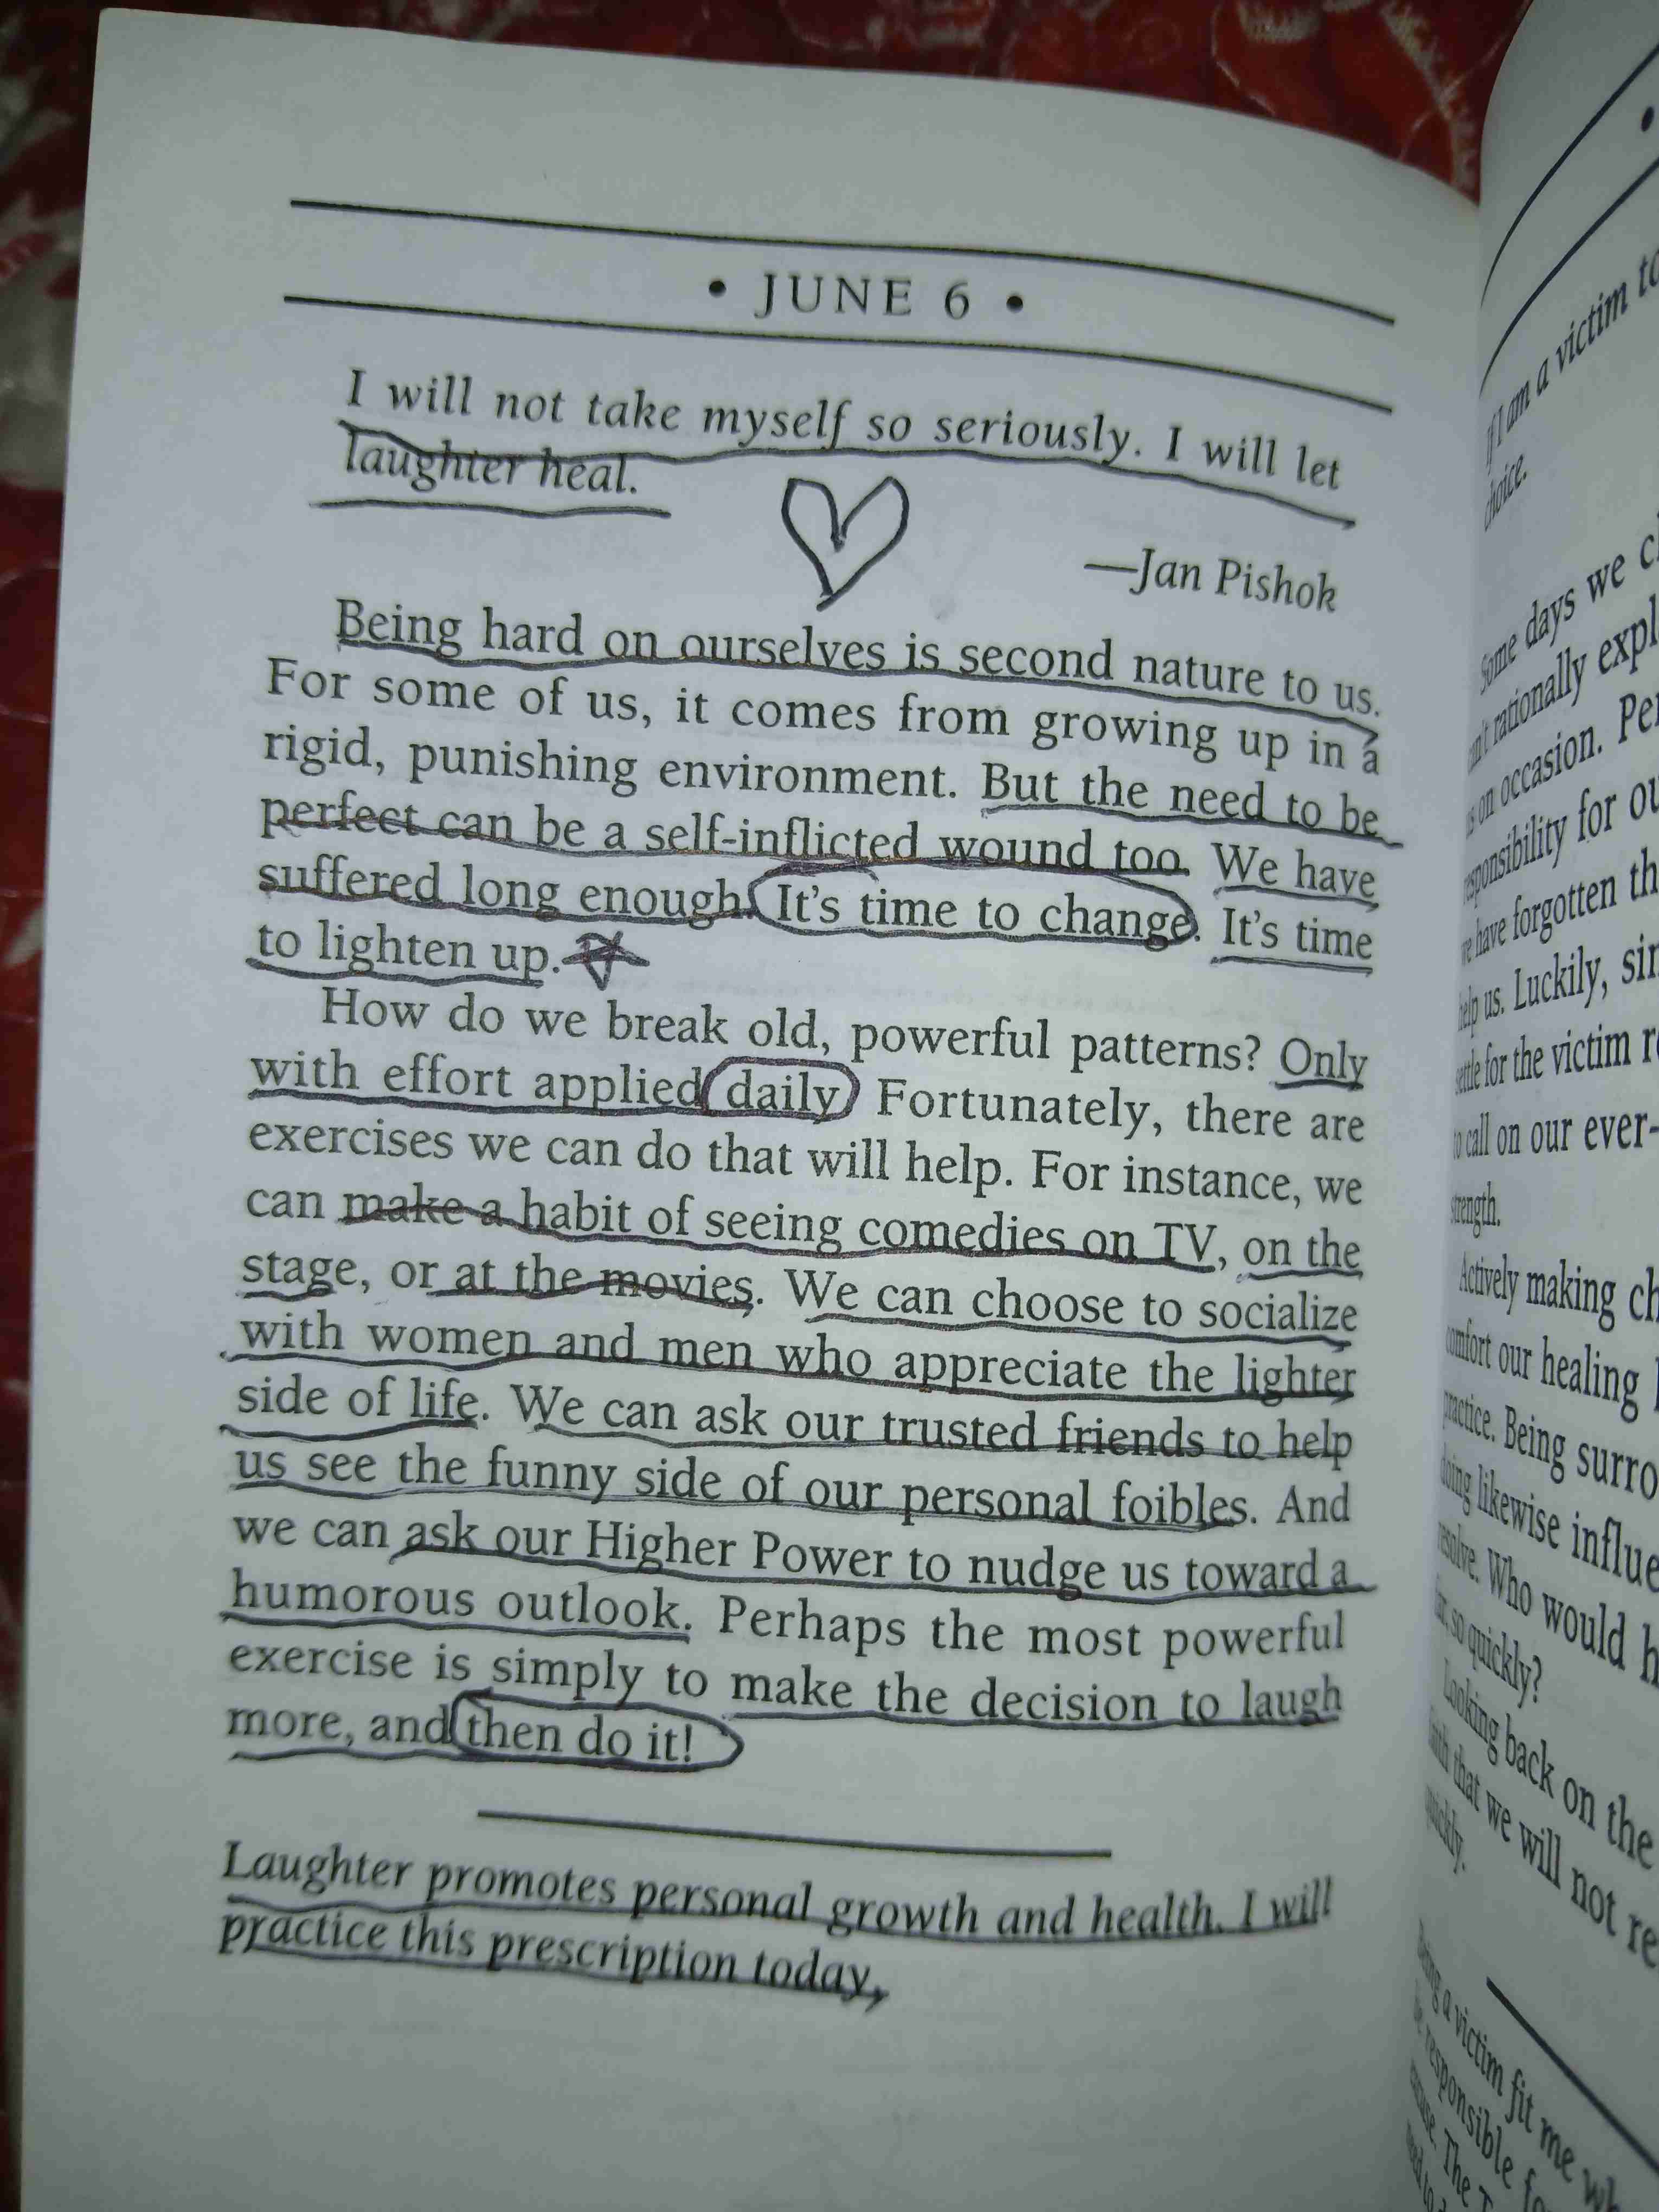 • JUNE 6 •
I will not take myself so seriously. I will let
laughter heal.
—Jan Pishok
Being hard on ourselves is second nature to us.
For some of us, it comes from growing up in a
rigid, punishing environment. But the need to be
perfect can be a self-inflicted wound too. We have
suffered long enough. It's time to change. It's time
to lighten up.
How do we break old, powerful patterns? Only
with effort applied daily. Fortunately, there are
exercises we can do that will help. For instance, we
can make a habit of seeing comedies on TV, on the
stage, or at the movies. We can choose to socialize
with women and men who appreciate the lighter
side of life. We can ask our trusted friends to help
us see the funny side of our personal foibles. And
we can ask our Higher Power to nudge us toward a
humorous outlook. Perhaps the most powerful
exercise is simply to make the decision to laugh
more, and then do it!
Laughter promotes personal growth and health. I will
practice this prescription today.
If I am a victim
choice.
Some days we
rationally
on occasion.
for
have forgotten
help us. Luckily,
settle for the victim
to call on our ever-
strength.
Actively making
comfort our healing
practice. Being
doing likewise
resolve. Who would
so quickly?
Looking back on the
faith that we will not
quickly.
a victim fit me
responsible
excuse. The